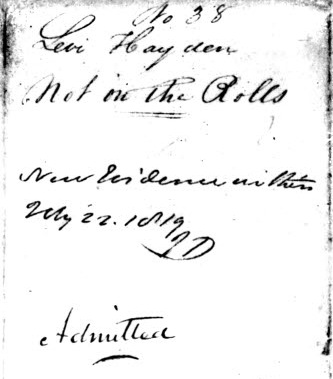 No 38
Levi Hayden
Not on the Rolls
New Evidence within
Feby 22. 1819
JD
Admitted